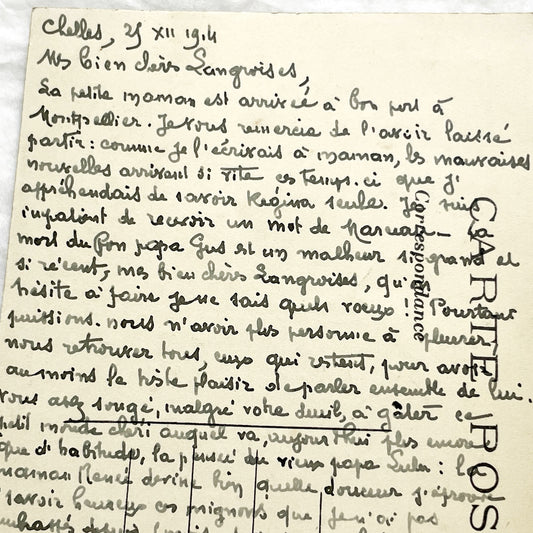 Chelles, 25 XII 1914
Mes bien chères Langroises,
La petite maman est arrivée à bon port à
Montpellier. Je vous remercie de l'avoir laissé
partir : comme je l'écrivais à maman, les mauvaises
nouvelles arrivent si vite ces temps-ci que j'
appréhendais de savoir Régina seule. Je suis
impatient de recevoir un mot de Marceau. La
mort du bon papa Gus est un malheur si grand et
si récent, mes bien chères Langroises, qu'on
hésite à faire je ne sais quels voeux ! Pourtant
puissions-nous n'avoir plus personne à pleurer,
nous retrouver tous, ceux qui restent, pour avoir
au moins le triste plaisir de parler ensemble de lui.
Vous avez songé, malgré votre deuil, à gâter ce
petit monde chéri auquel va, aujourd'hui plus encore
que d'habitude, la pensée du vieux papa Lulu : la
maman Renée devine bien quelle douceur j'éprouve
à savoir heureux ces mignons que je n'ai pas
embrassés depuis
CARTE POS
Correspondance